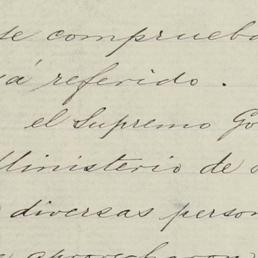 se comprueba
á referido.
el Supremo Go
Ministerio de
diversas person
aprovecharon